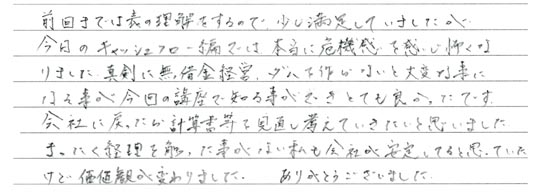 前回までは表の理解をするので、少し満足していましたが
今日のキャッシュフロー編では本当に危機感を感じ怖くな
りました。真剣に無借金経営、ダムを作らないと大変な事に
なる事が今回の講座で知る事ができとても良かったです。
会社に戻ったら計算書等を見直し考えていきたいと思いました。
まったく経理を触った事がない私も会社が安定してると思っていた
けど価値観が変わりました。 ありがとうございました。